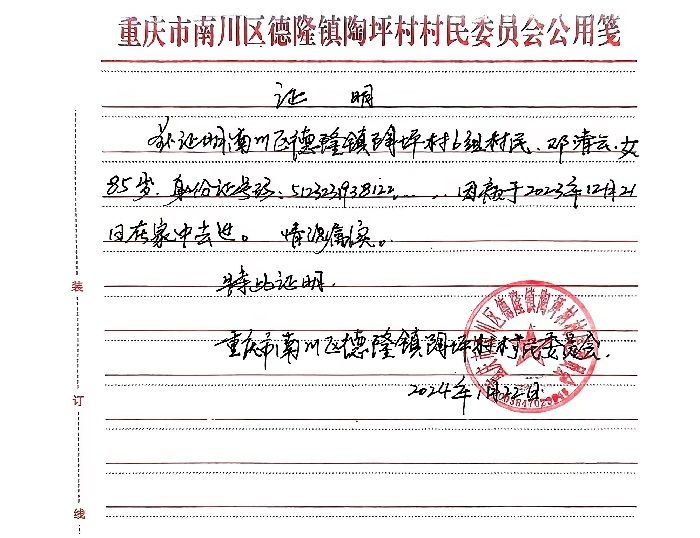 重庆市南川区德隆镇陶坪村村民委员会公用笺
证 明
兹证明南川区德隆镇陶坪村6组村民，邓清云，女
85岁，身份证号码：5123231938122……，因病于2023年12月21
日在家中去世。情况属实。
特此证明
重庆市南川区德隆镇陶坪村村民委员会
2024年1月22日
装
订
线